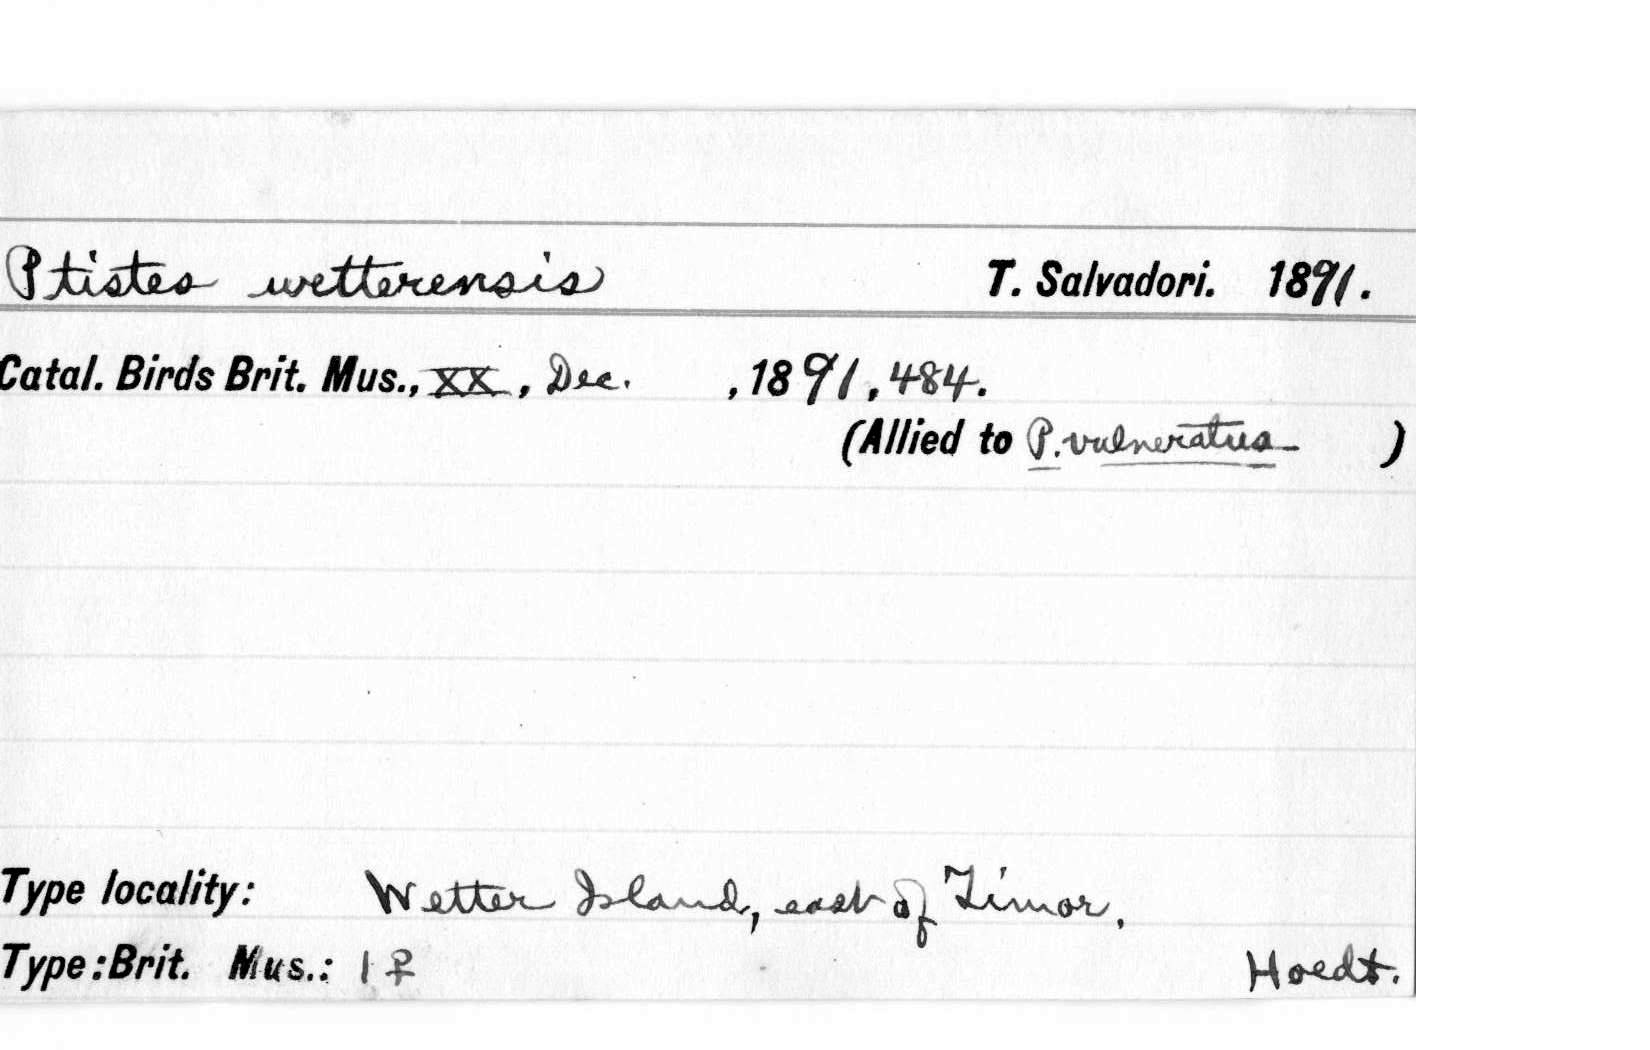 Ptistes wetterensis T. Salvadori. 1891.
Catal. Birds Brit. Mus., XX, Dec. , 1891, 484.
(Allied to P. vulneratus )
Type locality: Wetter Island, east of Timor.
Type: Brit. Mus.: 1 ♀ Hoedt.